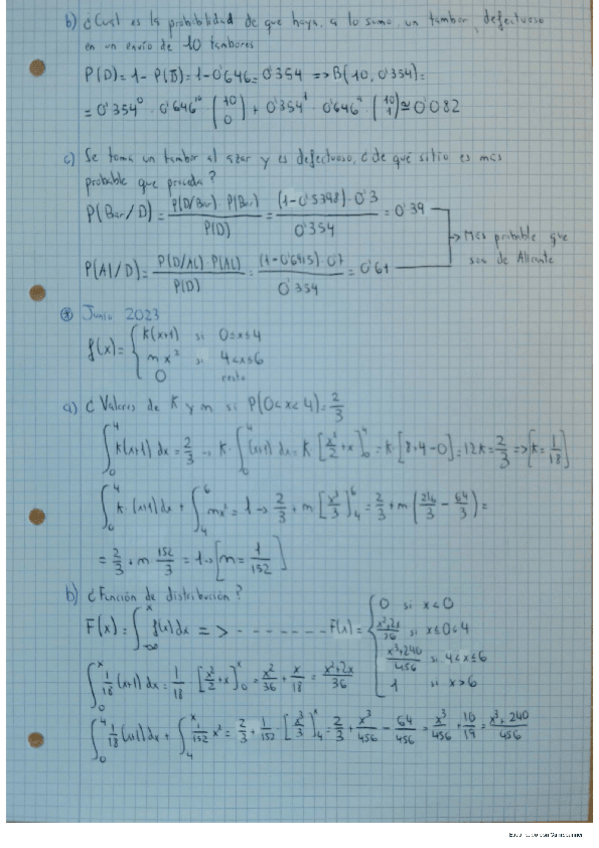 b) ¿Cuál es la probabilidad de que haya, a lo sumo, un tambor defectuoso
en un envío de 10 tambores
P(D)=1-P(B̄)=1-0'646=0'354 => B(10, 0'354)=
= 0'354⁰ · 0'646¹⁰ (10 0) + 0'354¹ · 0'646⁹ (10 1) ≅ 0'082
c) Se toma un tambor al azar y es defectuoso, ¿de qué sitio es más
probable que proceda?
P(Bar/D) = P(D/Bar) · P(Bar) / P(D) = (1-0'5398) · 0'3 / 0'354 = 0'39
→ Más probable que
sea de Alicante
P(Al/D) = P(D/AL) · P(AL) / P(D) = (1-0'6915) · 0'7 / 0'354 = 0'61
Junio 2023
f(x) = { K(x+1) si 0≤x≤4
m x² si 4<x≤6
0 resto
a) ¿Valores de K y m si P(0<x<4)=2/3
∫₀⁴ k(x+1) dx = 2/3 → K · ∫₀⁴ (x+1) dx = K · [x²/2 + x]₀⁴ = K · [8+4-0] = 12K = 2/3 => [K = 1/18]
∫₀⁴ K · (x+1) dx + ∫₄⁶ mx² = 1 → 2/3 + m [x³/3]₄⁶ = 2/3 + m (216/3 - 64/3) =
= 2/3 + m · 152/3 = 1 → [m = 1/152]
b) ¿Función de distribución?
F(x) = ∫₋∞ˣ f(x) dx => - - - - - - - F(x) = { 0 si x<0
x²+2x/36 si x≤0≤4
x³+240/456 si 4<x≤6
1 si x>6
∫₀ˣ 1/18 (x+1) dx = 1/18 · [x²/2 + x]₀ˣ = x²/36 + x/18 = x²+2x/36
∫₀⁴ 1/18 (x+1) dx + ∫₄ˣ 1/152 x² = 2/3 + 1/152 · [x³/3]₄ˣ = 2/3 + x³/456 - 64/456 = x³/456 + 10/19 = x³+240/456